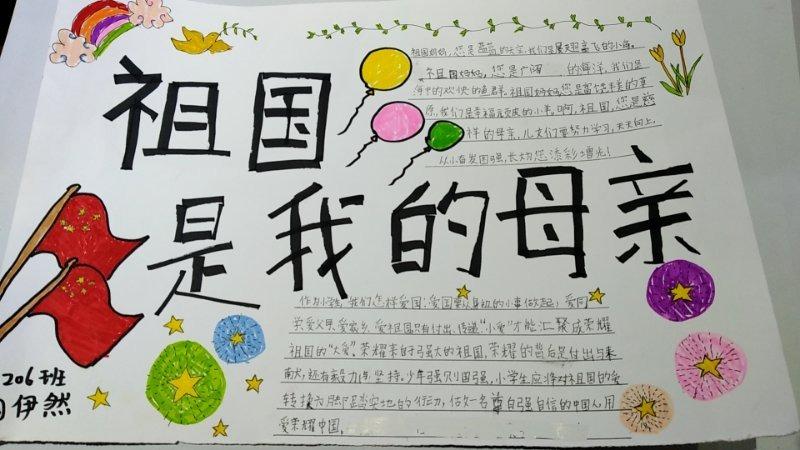 祖国
是我的母亲
祖国妈妈,您是蓝蓝的天空,我们是展翅高飞的小鸟。
祖国妈妈,您是广阔 的海洋,我们是
海中的欢快的鱼群。祖国妈妈,您是富饶的草
原,我们是幸福 的小羊。啊,祖国,您是慈
祥的母亲,儿女们要努力学习,天天向上,
从小奋发图强,长大为您添彩增光!
作为小学生,我们怎样爱国:爱国要从身边的小事做起,爱同
学,爱父母,爱家乡,爱祖国,只有付出,传递“小爱”才能汇聚成荣耀
祖国的“大爱”,荣耀来的强大的祖国,荣耀的背后是付出与奉
献,还有毅力与坚持。少年强则国强,小学生应将对祖国的爱
转换为脚踏实地的行动,做好一名 自强自信的中国人,用
爱荣耀中国.
206班
伊然